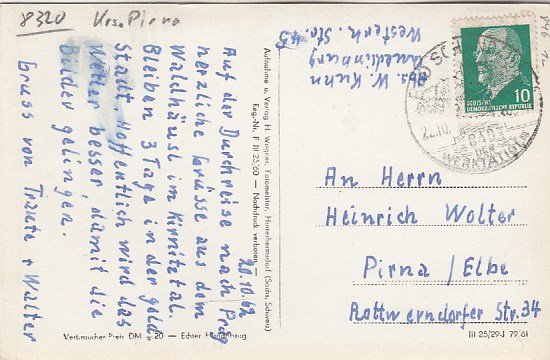 8320 Krs. Pirna
Abs. W. Kuhn
Quedlinburg
Westerh. Str. 45
20.10.62
Auf der Durchreise nach Prag
herzliche Grüsse aus dem
Waldhäusl im Kirnitztal.
Bleiben 3 Tage in der gold.
Stadt, hoffentlich wird das
Wetter besser, damit die
Bilder gelingen.
Gruss von Traute + Walter
Aufnahme u. Verlag H. Wagner, Fotomeister, Hinterhermsdorf (Sächs. Schweiz)
Reg.-Nr. F III 25/60 — Nachdruck verboten —
Verbraucher-Preis DM -,20 — Echter Handabzug
10
DEUTSCHE
DEMOKRATISCHE REPUBLIK
BAD SCHANDAU
DER
WERKTÄTIGEN
An Herrn
Heinrich Wolter
Pirna / Elbe
Rottwerndorfer Str. 34
III 25/29-J 79/61